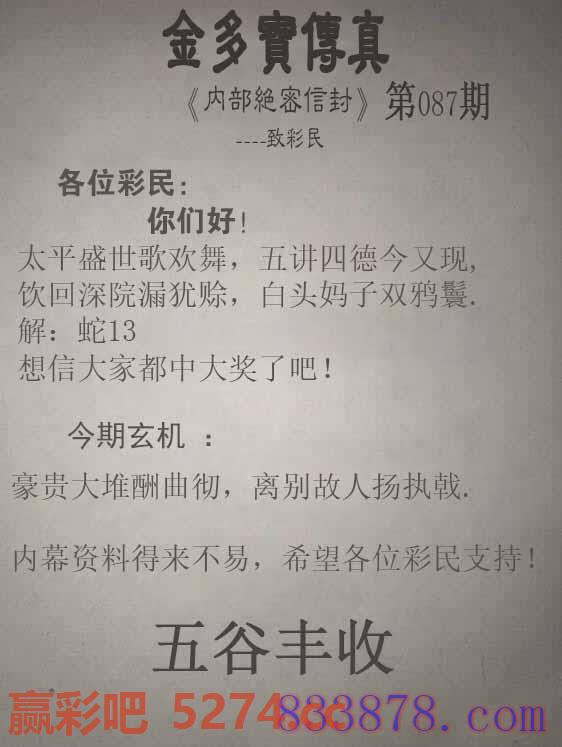 金多寶傳真
《内部絶密信封》第087期
----致彩民
各位彩民:
你们好!
太平盛世歌欢舞，五讲四德今又现,
饮回深院漏犹赊，白头妈子双鸦鬟.
解：蛇13
想信大家都中大奖了吧!
今期玄机 ：
豪贵大堆酬曲彻，离别故人扬执戟.
内幕资料得来不易，希望各位彩民支持!
五谷丰收
赢彩吧 5274.cc
833878.com